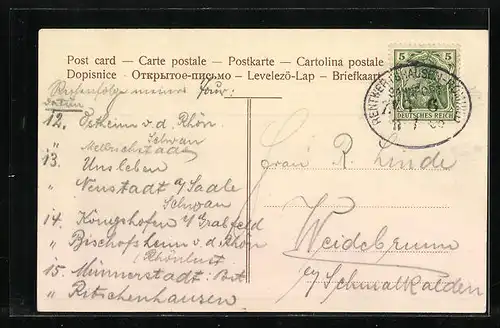 Post card — Carte postale — Postkarte — Cartolina postale
Dopisnice — Открытое-письмо — Levelező-Lap — Briefkaart
Reihenfolge meiner Tour:
Datum
12. Ostheim v. d. Rhön
Schwan
" Mellrichstadt
13. Unsleben
" Neustadt a/Saale
Schwan
14. Königshofen i/Grabfeld
" Bischofsheim v. d. Rhön
Rhönlust
15. Münnerstadt: Post
" Ritschenhausen
5 5
DEUTSCHES REICH
BAHNPOST
R. Linde
Weidebrunn
b/Schmalkalden